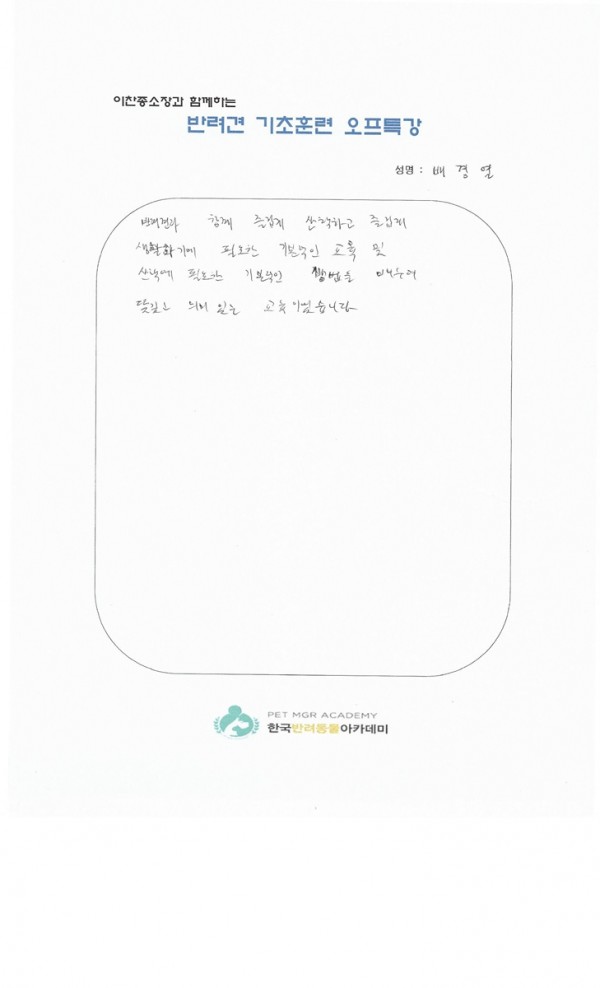 이찬종소장과 함께하는
반려견 기초훈련 오프특강
성명 : 배 경 열
반려견과 함께 즐겁게 산책하고 즐겁게
생활하기에 필요한 기본적인 교육 및
산책에 필요한 기본적인 방법을 배우어
뜻깊고 의미 있는 교육이었습니다
PET MGR ACADEMY
한국반려동물아카데미